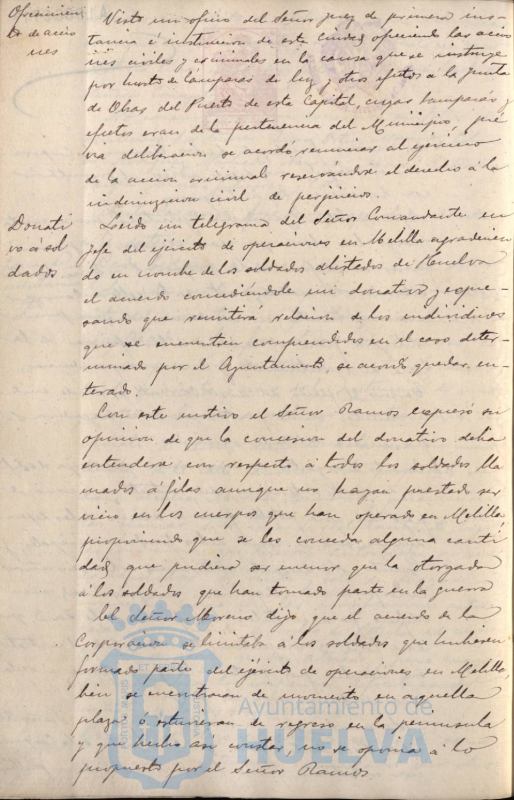 Ofrecimien
to de accio
nes
Visto un oficio del Señor Juez de primera ins-
tancia é instruccion de esta Ciudad ofreciendo las accio
nes civiles y criminales en la causa que se instruye
por hurto de lamparas de luz y otros efectos a la Junta
de Obras del Puerto de esta Capital, cuyas lamparas y
efectos eran de la pertenencia del Municipio, pré
via deliberacion se acordó renunciar al ejercicio
de la accion criminal reservándose el derecho á la
indemnizacion civil de perjuicios.
Donati
vo á sol
dados
Leido un telegrama del Señor Comandante en
Jefe del ejército de operaciones en Melilla agradecien
do en nombre de los soldados alistados de Huelva
el acuerdo concediéndole un donativo y expre-
sando que remitirá relacion de los individuos
que se encuentren comprendidos en el caso deter-
minado por el Ayuntamiento, se acordó quedar en-
terado.
Con este motivo el Señor Ramos expresó su
opinion de que la concesion del donativo debia
entenderse con respecto á todos los soldados lla
mados á filas aunque no hayan prestado ser
vicio en los cuerpos que han operado en Melilla,
proponiendo que se les conceda alguna canti
dad que pudiera ser menor que la otorgada
á los soldados que han tomado parte en la guerra
El Señor Moreno dijo que el acuerdo de la
Corporacion se limitaba á los soldados que hubiesen
formado parte del ejército de operaciones en Melilla,
bien se encontraran de momento en aquella
plaza ó estuvieran de regreso en la peninsula
y que hecho asi constar, no se oponia á lo
propuesto por el Señor Ramos.
Ayuntamiento de
HUELVA